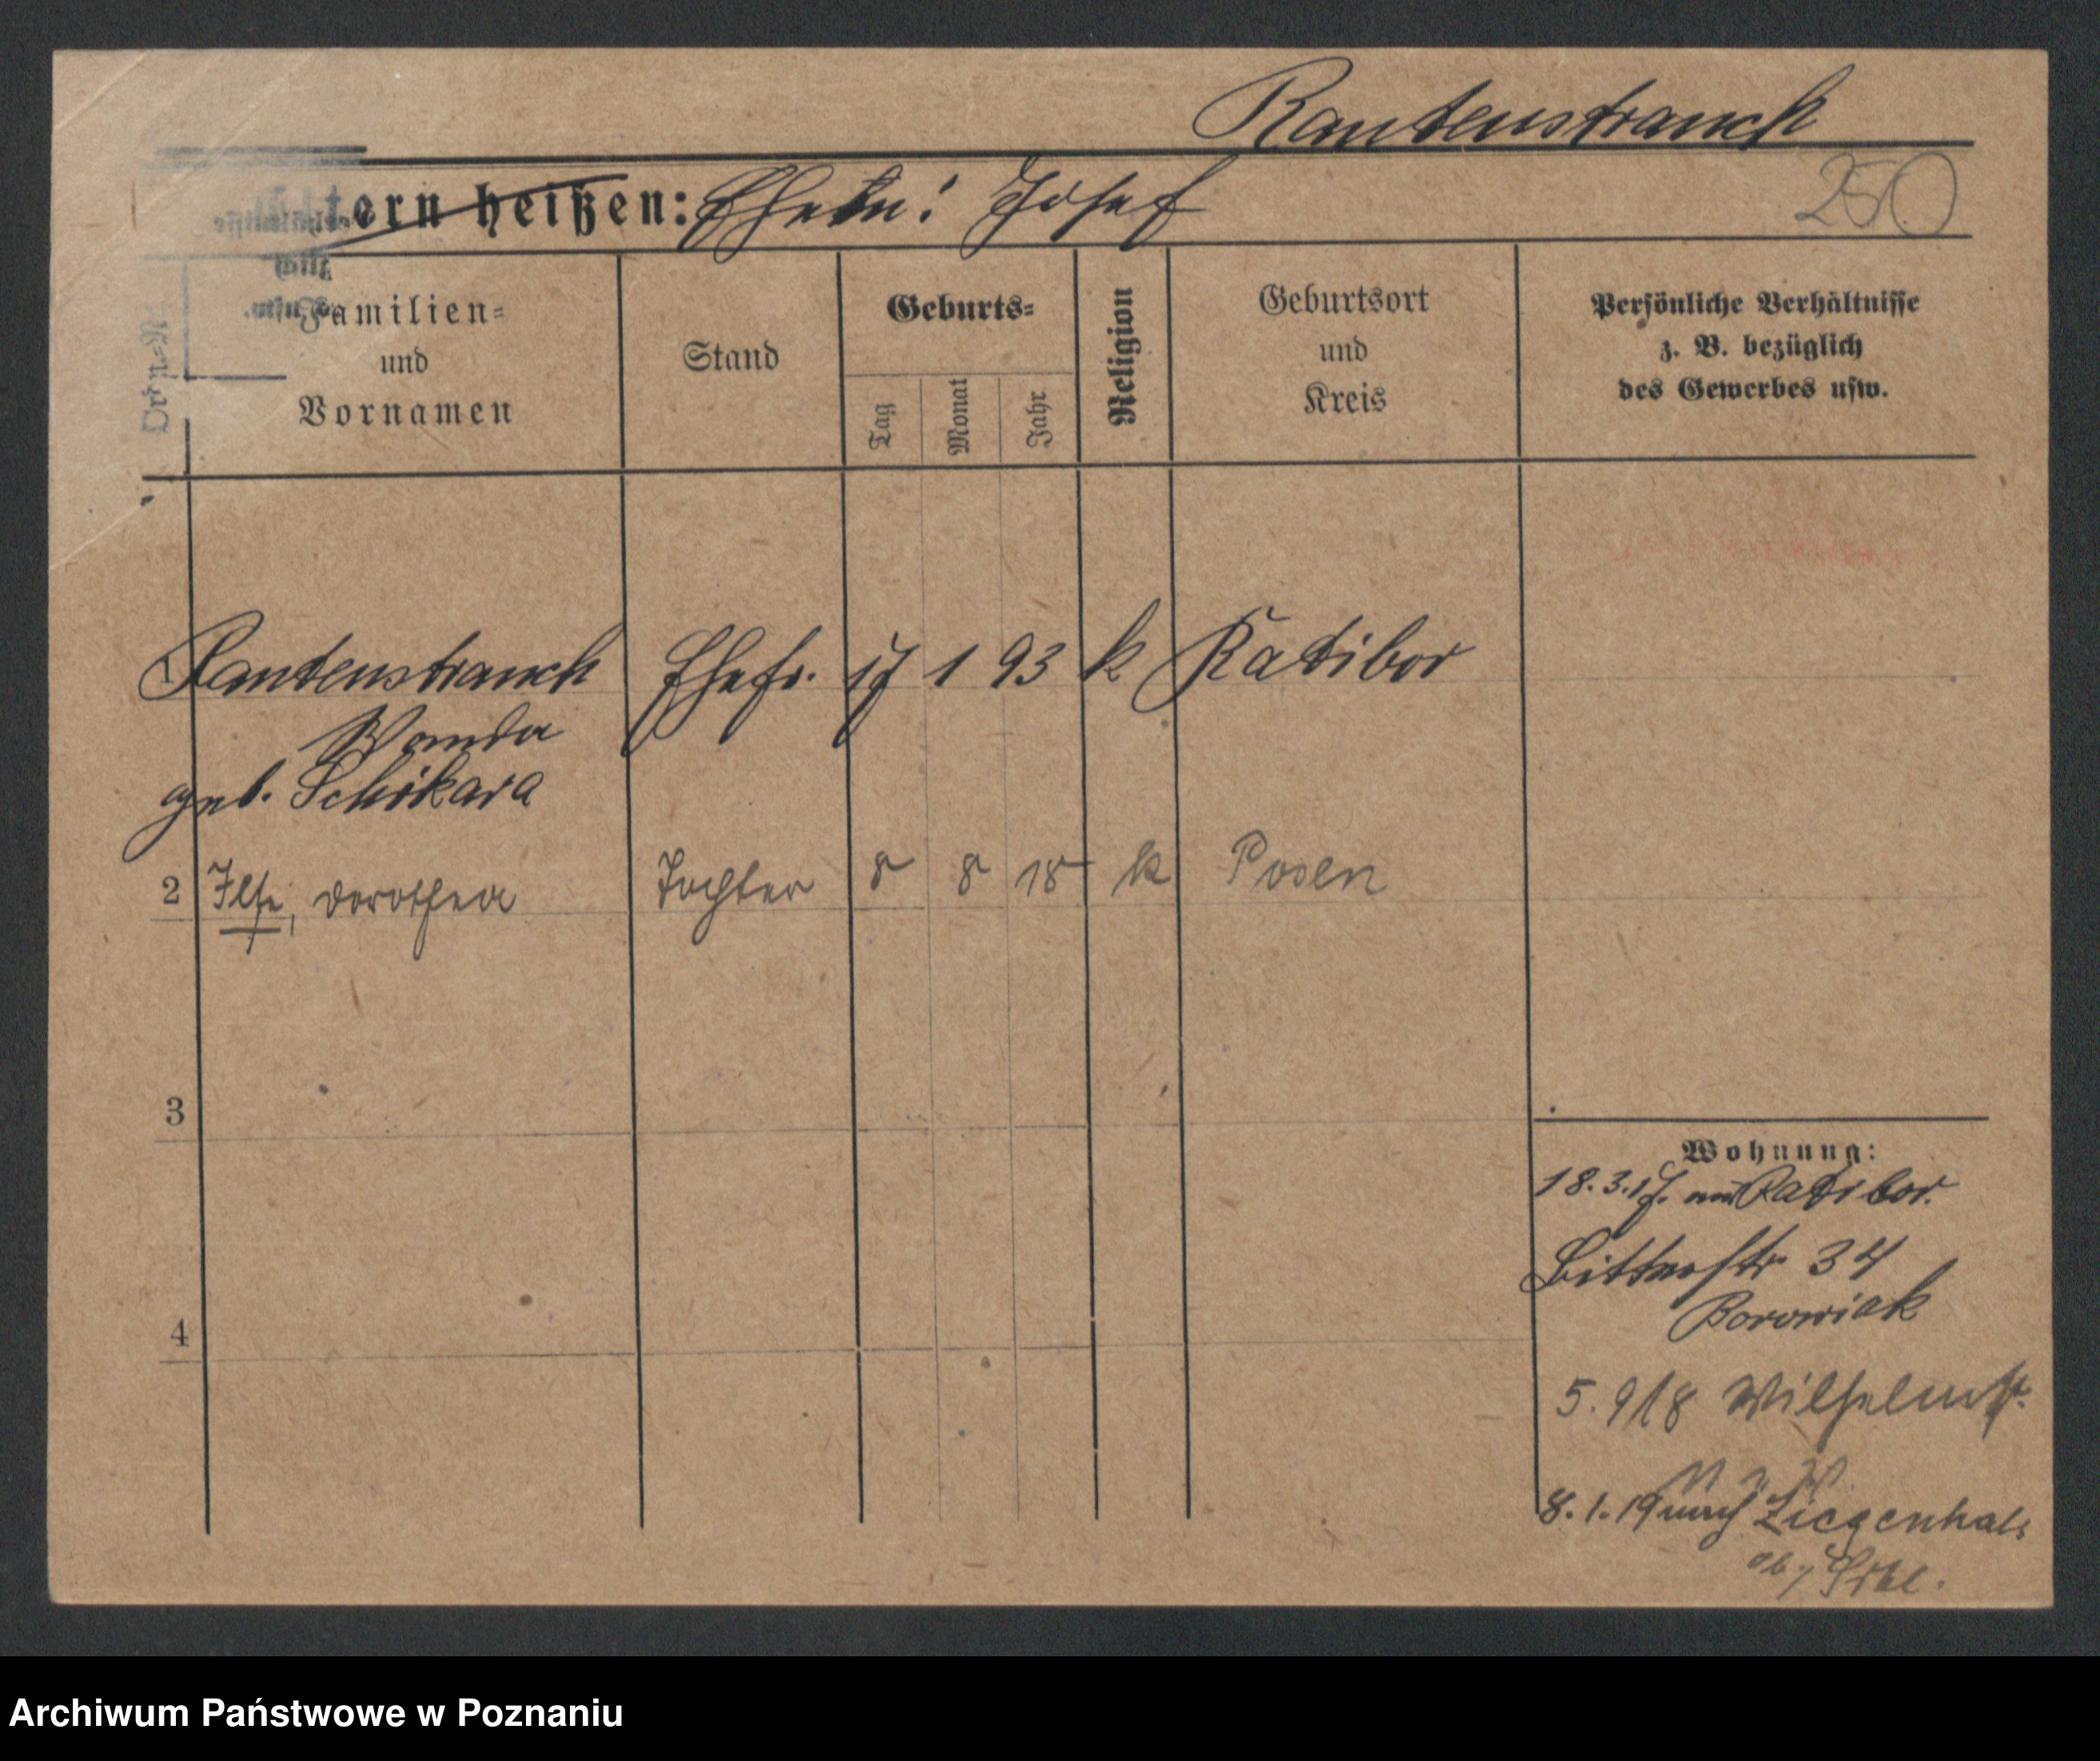 Rautenstrauch
tern heißen: Ehem: Josef
250
Ordn.-Nr.
Familien-
und
Vornamen
Stand
Geburts-
Tag
Monat
Jahr
Religion
Geburtsort
und
Kreis
Persönliche Verhältnisse
z. B. bezüglich
des Gewerbes usw.
Rautenstrauch Ehefr. 17 1 93 k Ratibor
Wanda
geb. Schikara
2 Ilse, Dorothea Tochter 8 8 18 k Posen
3
4
Wohnung:
18.3.17. aus Ratibor.
Bittnerstr 34
Borowiak
5.9 18 Wilhelmstr.
8.1.19 nach Ziegenhals
Archiwum Państwowe w Poznaniu